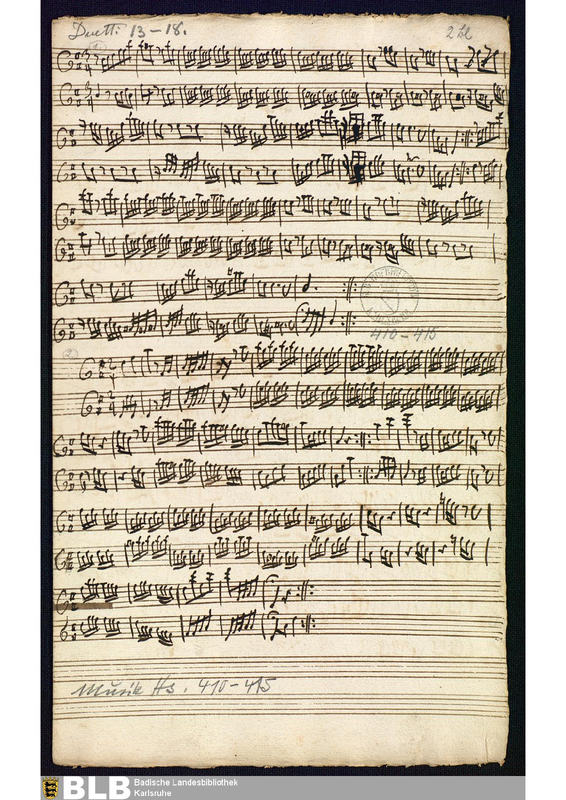 Duetti 13-18.
2 bl
410-415
Musik Hs. 410-415
BLB Badische Landesbibliothek
Karlsruhe